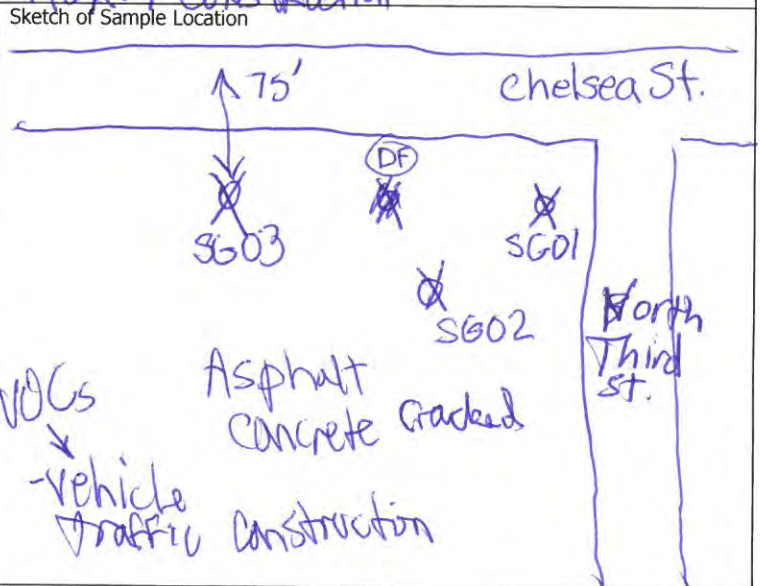 Sketch of Sample Location
75' Chelsea St.
DF
SG03 SG01
SG02
North
Third
St.
Asphalt
Concrete Cracked
VOCs
-Vehicle
traffic Construction